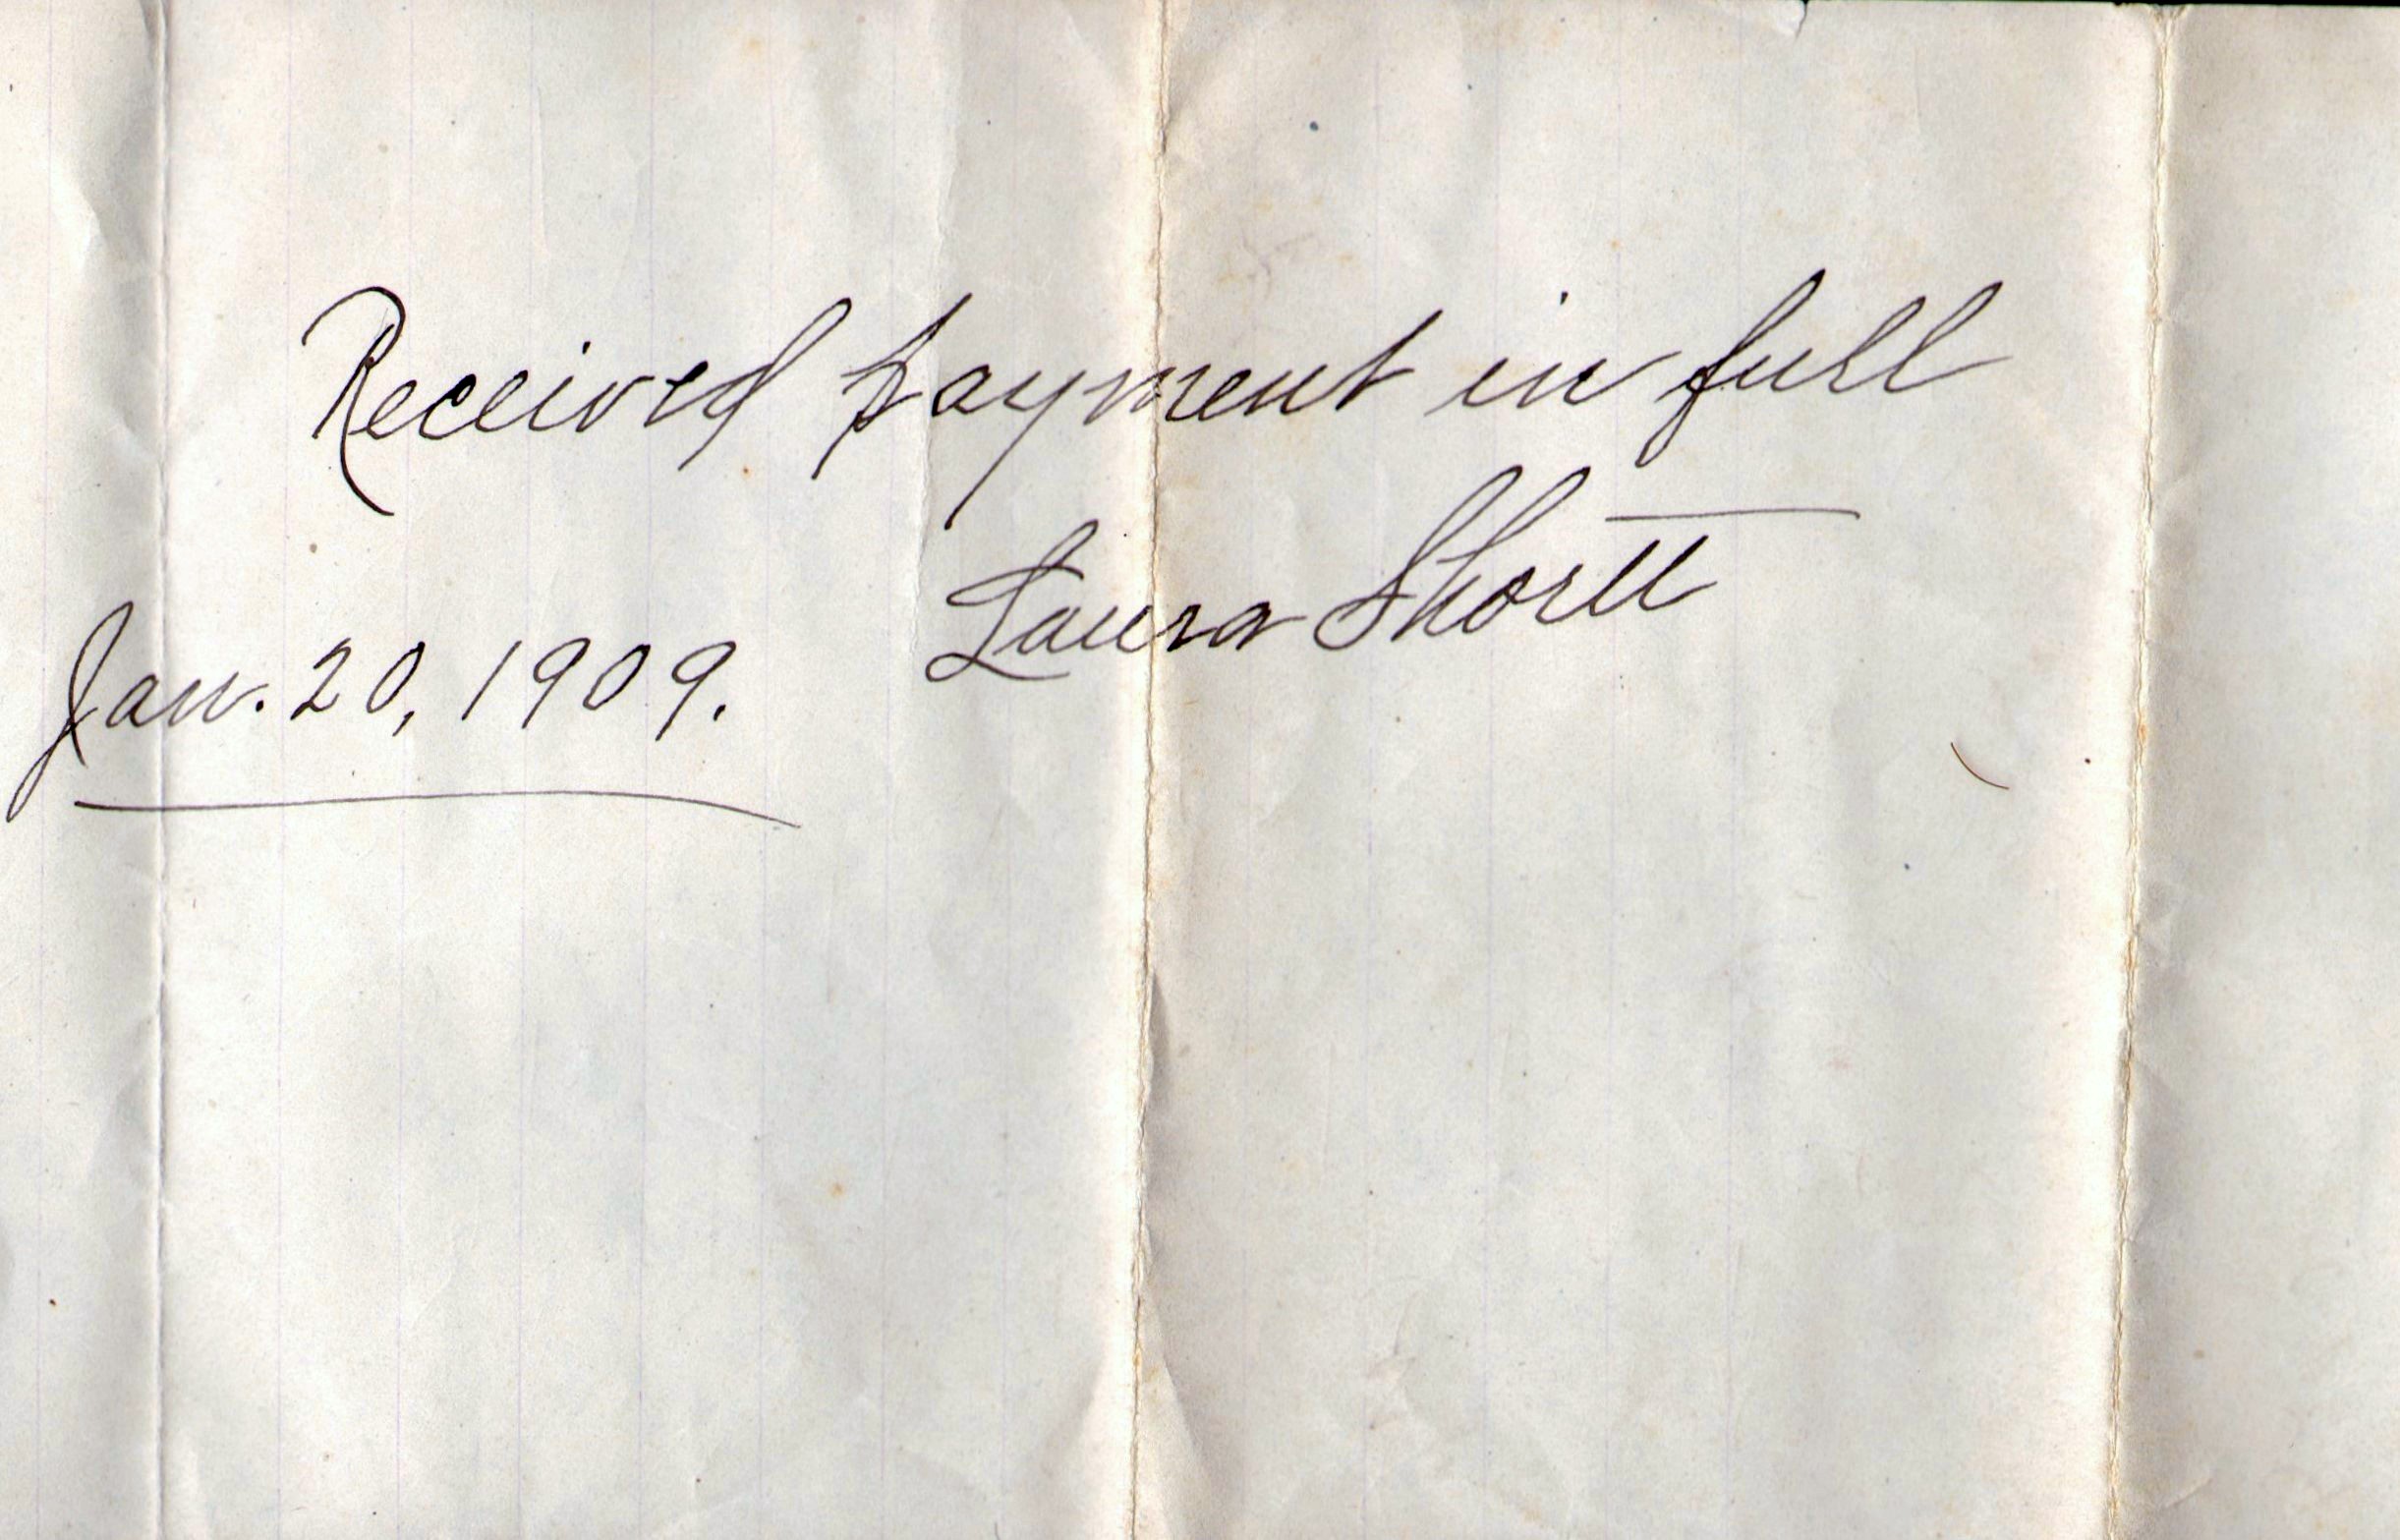 Received payment in full
Laura Shortt
Jan. 20, 1909.